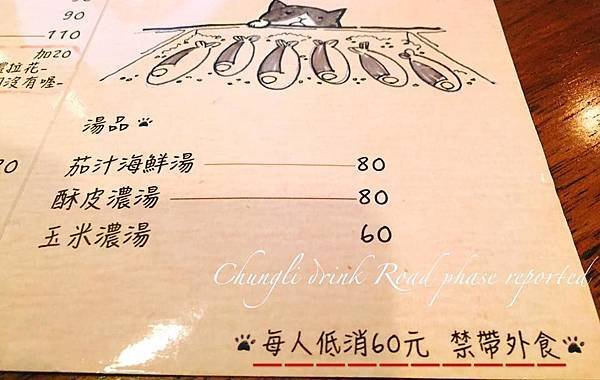 90
90
110
加20
拉花-
沒有喔-
湯品
茄汁海鮮湯 80
酥皮濃湯 80
玉米濃湯 60
Chungli drink Road phase reported
每人低消60元 禁帶外食